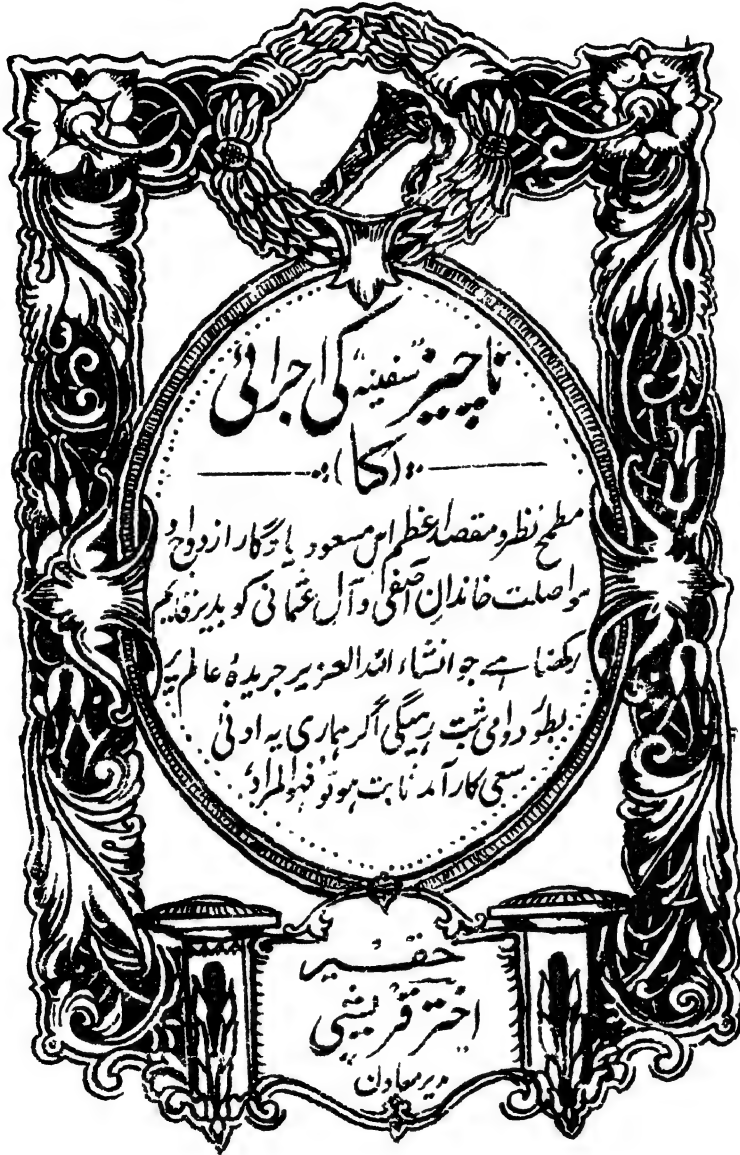 ناچیز "سفینہ" کی اجرائی
(کا)
مطمح نظر و مقصد اعظم اس مسعود یادگار ازدواج و
مواصلت خاندانِ آصفی و آلِ عثمانی کو بدیر قایم
رکھنا ہے جو انشاء اللہ العزیز جریدۂ عالم پر
بطور دوامی ثبت رہیگی اگر ہماری یہ ادنیٰ
سعی کارآمد ثابت ہو تو فہوالمراد
حقیر
"اختر قریشی"
مدیر معاون